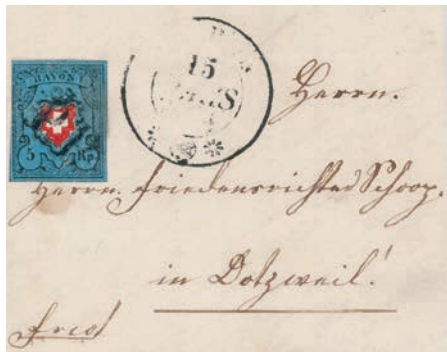 RAYON I
5 Rp.
15
Herrn.
Herrn. Friedensrichter Schoop.
in Dotzweil!
frco